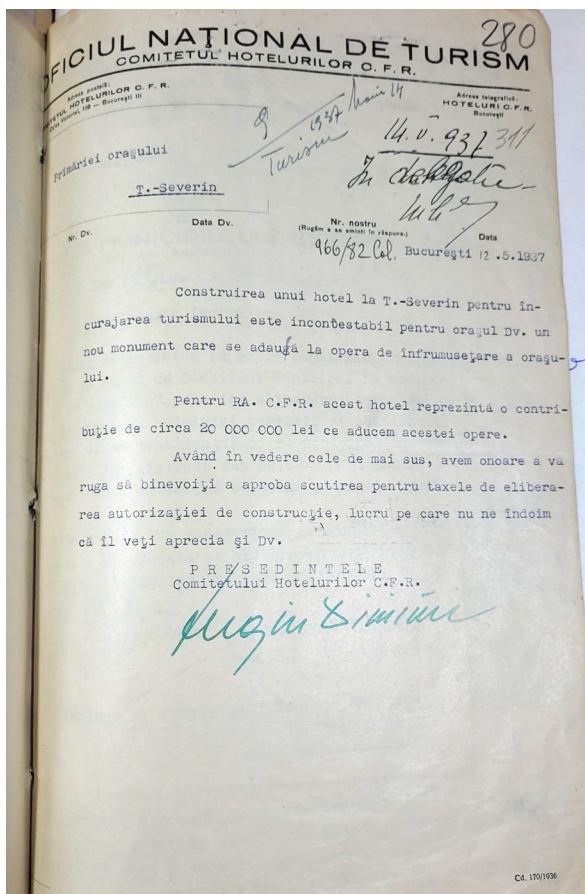 280
OFICIUL NAȚIONAL DE TURISM
COMITETUL HOTELURILOR C. F. R.
Adresa poștală:
COMITETUL HOTELURILOR C. F. R.
București III
Adresa telegrafică:
HOTELURI C. F. R.
București
9
1937 Maiu 14
Turism
14. V. 937
311
In
Primăriei orașului
T.-Severin
Nr. Dv.
Data Dv.
Nr. nostru
(Rugăm a se aminti în răspuns.)
Data
966/82 Col.
București 12.5.1937
Construirea unui hotel la T.-Severin pentru în-
curajarea turismului este incontestabil pentru orașul Dv. un
nou monument care se adaugă la opera de înfrumusețare a orașu-
lui.
Pentru RA. C.F.R. acest hotel reprezintă o contri-
buție de circa 20 000 000 lei ce aducem acestei opere.
Având în vedere cele de mai sus, avem onoare a vă
ruga să binevoiți a aproba scutirea pentru taxele de elibera-
rea autorizației de construcție, lucru pe care nu ne îndoim
că îl veți aprecia și Dv.
P R E S E D I N T E L E
Comitetului Hotelurilor C.F.R.
Cd. 170/1936